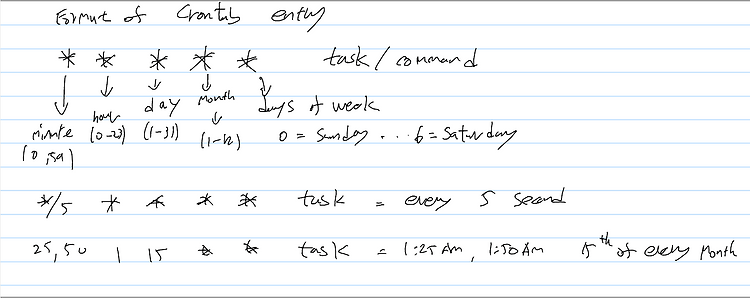 Format of Crontab entry
* * * * * task / command
minute hour day Month days of week
(0,59) (0-23) (1-31) (1-12) 0 = Sunday ... 6 = Saturday
*/5 * * * * task = every 5 second
25,50 1 15 * * task = 1:25 Am, 1:50 Am 15th of every Month